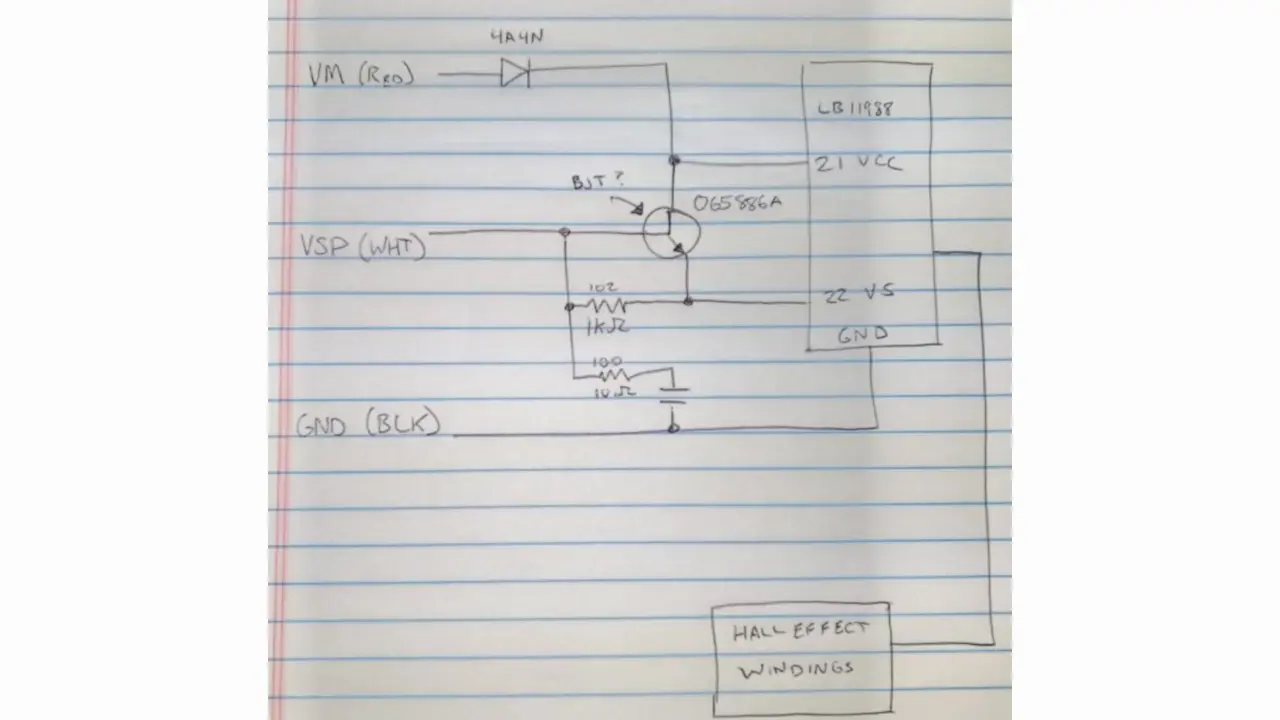 4A4N
VM (RED)
LB11988
21 VCC
BJT?
O65886A
VSP (WHT)
102
1KΩ
22 VS
GND
100
10Ω
GND (BLK)
HALL EFFECT
WINDINGS